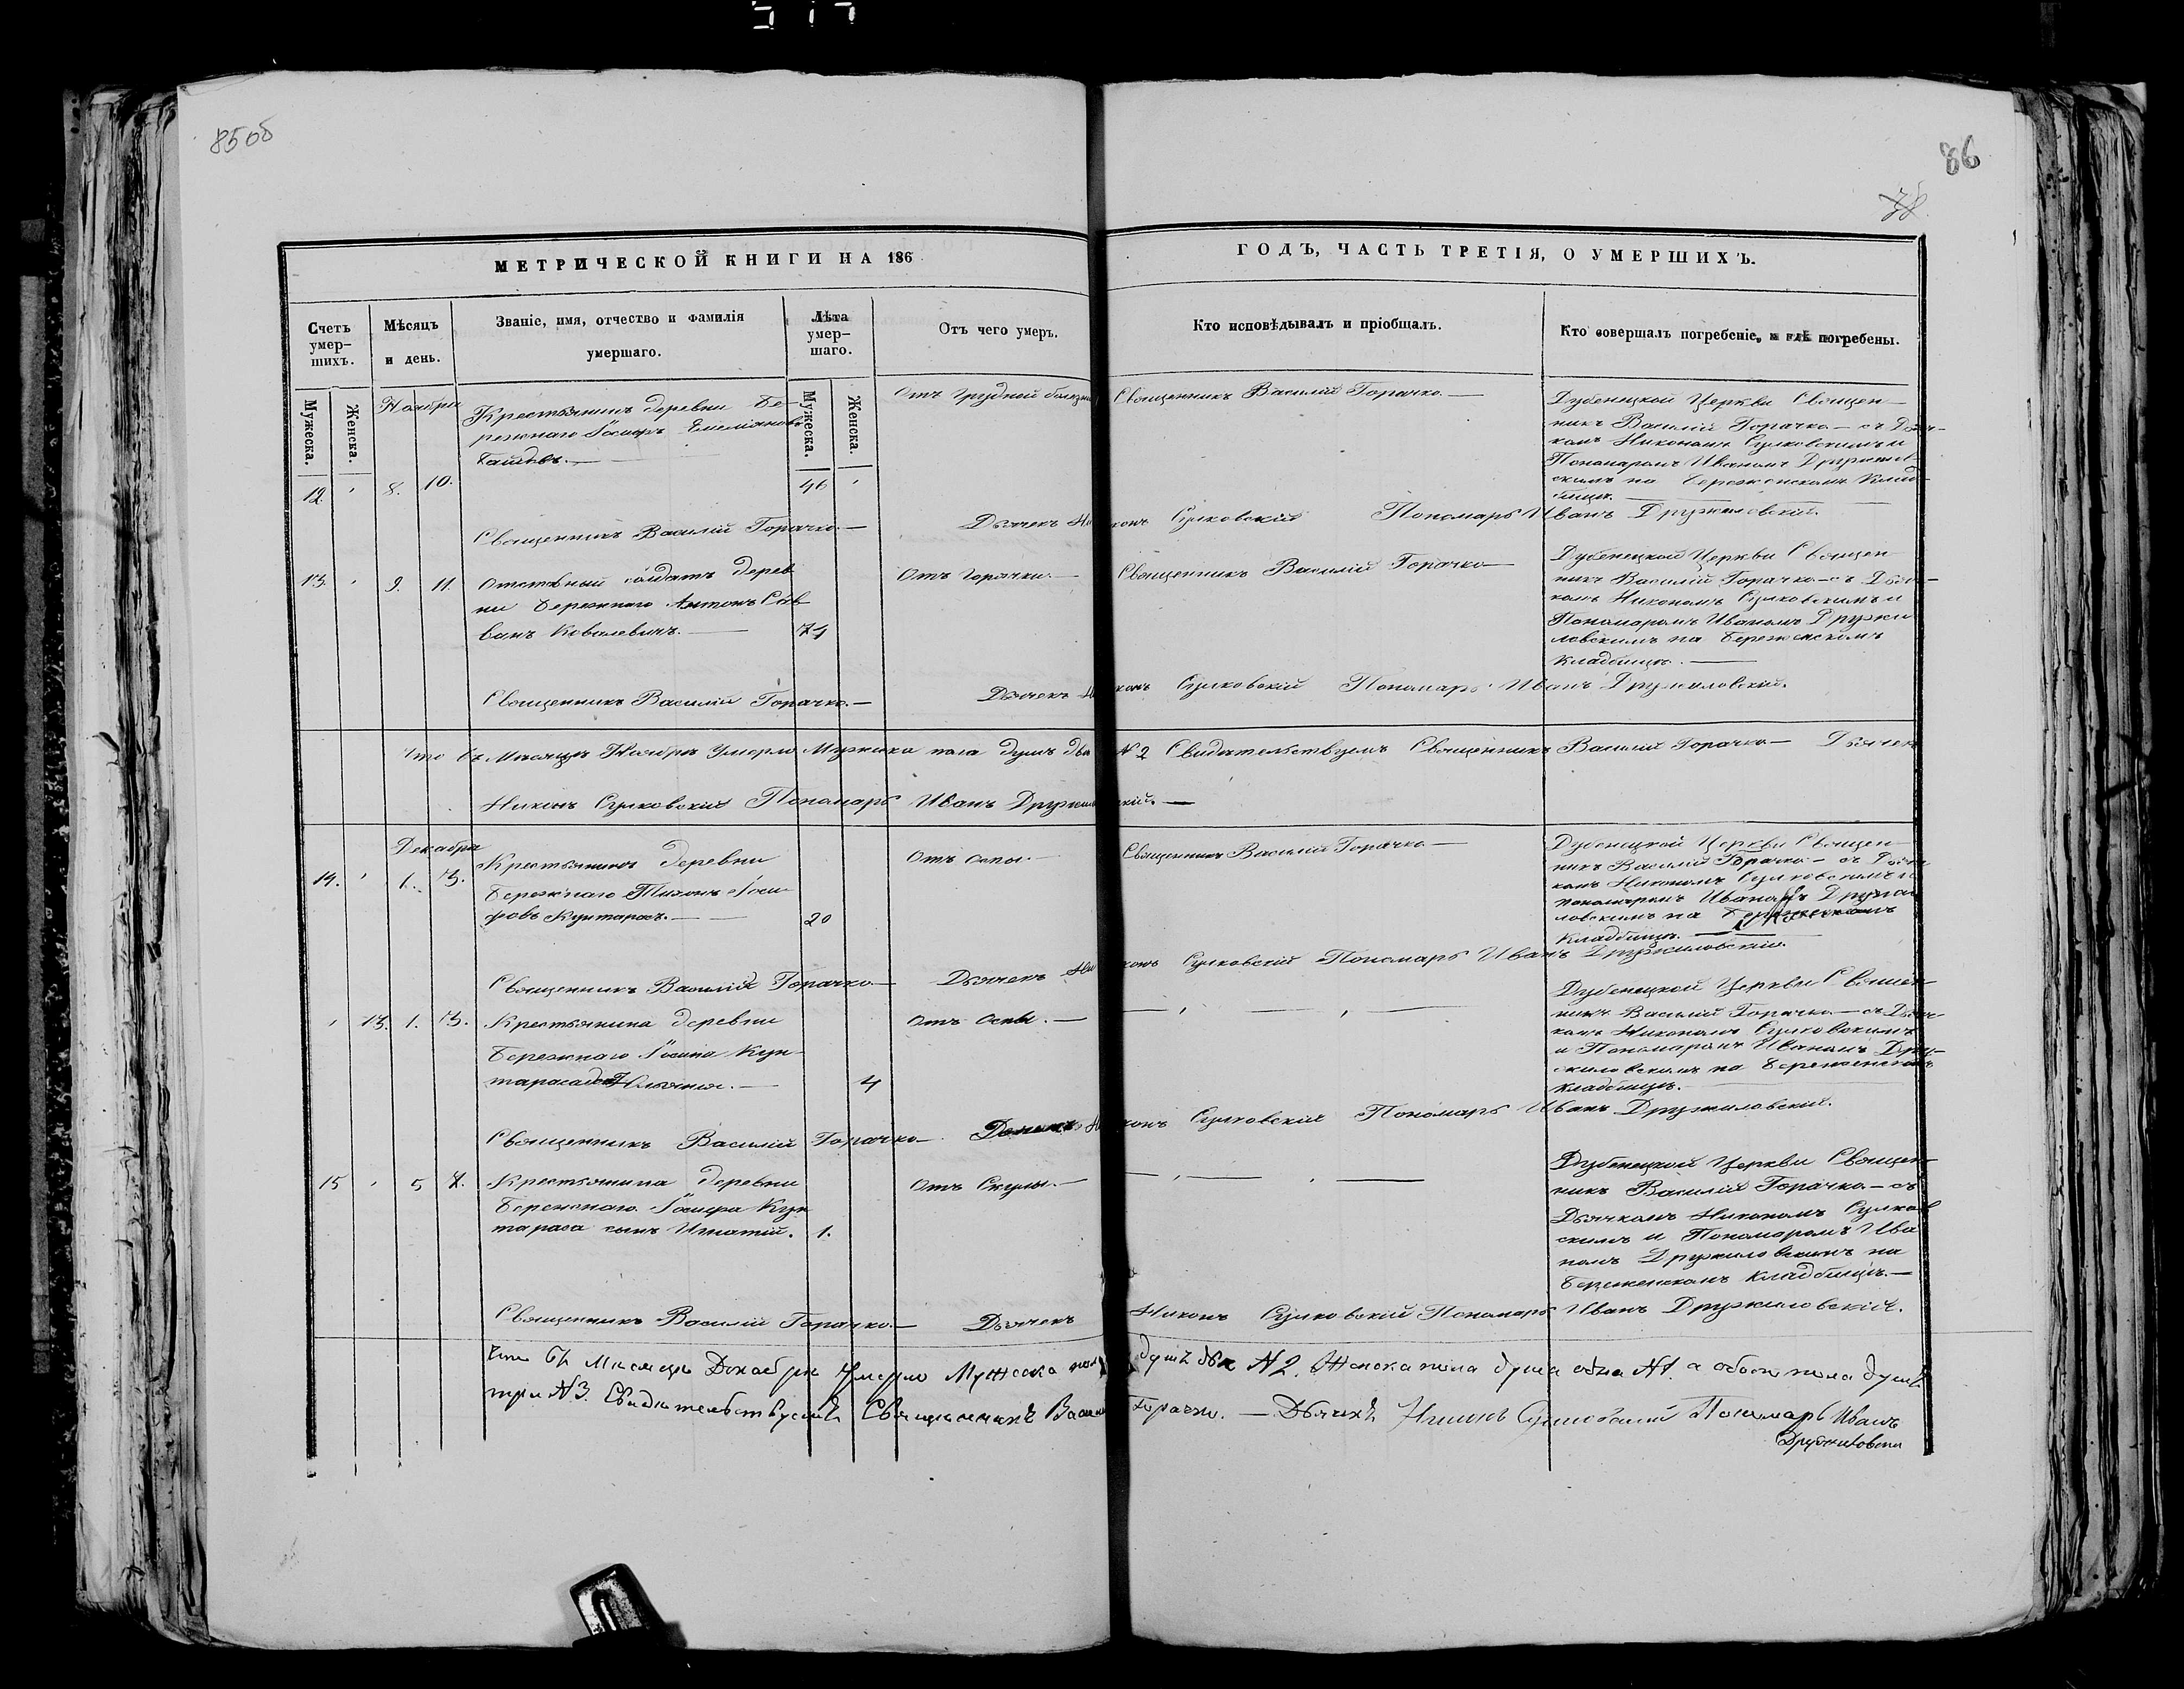 85об
86
МЕТРИЧЕСКОЙ КНИГИ НА 186
ГОДЪ, ЧАСТЬ ТРЕТІЯ, О УМЕРШИХЪ.
Счетъ умер-
шихъ.
Мѣсяцъ
и день.
Званіе, имя, отчество и фамилія
умершаго.
Лѣта
умер-
шаго.
Отъ чего умеръ.
Кто исповѣдывалъ и пріобщалъ.
Кто совершалъ погребеніе, и гдѣ погребены.
Мужеска.
Женска.
Мужеска.
Женска.
Ноября
12. 8. 10.
Крестьянинъ деревни Бе-
режнаго Іосифъ Емельяновъ
46
Отъ грудной болезни
Священникъ Василій Горачко
Дубенецкой Церкви Священ-
никъ Василій Горачко съ Дьяч-
комъ Никономъ Сулковскимъ и
Пономаромъ Иваномъ Дружилов-
скимъ на Бережонскомъ Клад-
бищѣ.
Священникъ Василій Горачко Дьячекъ Никонъ Сулковскій Пономарь Иванъ Дружиловскій.
13. 9. 11.
Отставный солдатъ дерев
ни Бережнаго Антонъ Сав
винъ Ковалевичъ.
71
Отъ Горячки.
Священникъ Василій Горачко
Дубенецкой Церкви Священ-
никъ Василій Горачко съ Дьяч-
комъ Никономъ Сулковскимъ и
Пономаромъ Иваномъ Дружи
ловскимъ на Бережонскомъ
Кладбищѣ.
Священникъ Василій Горачко. Дьячекъ Никонъ Сулковскій Пономарь Иванъ Дружиловскій.
Что въ Мѣсяцѣ Ноябрѣ Умерло Мужеска пола душъ двѣ N 2 Свидѣтельствуемъ Священникъ Василій Горачко Дьячекъ
Никонъ Сулковскій Пономарь Иванъ Дружиловскій.
Декабря
14. 1. 3.
Крестьянинъ деревни
Бережнаго Тихонъ Іоси
фовъ Кунтарасъ.
20
Отъ оспы.
Священникъ Василій Горачко
Дубенецкой Церкви Священ-
никъ Василій Горачко съ Дьяч
комъ Никономъ Сулковскимъ и
пономаромъ Иваномъ Дружи
ловскимъ на
Кладбищѣ.
Священникъ Василій Горачко Дьячекъ Никонъ Сулковскій Пономарь Иванъ Дружиловскій.
13. 1. 3.
Крестьянина деревни
Бережнаго Іосифа Кун-
тараса
4
Отъ Оспы.
Дубенецкой Церкви Священ-
никъ Василій Горачко съ Дьяч-
комъ Никономъ Сулковскимъ
и Пономаромъ Иваномъ Дру-
жиловскимъ на Бережонскомъ
Кладбищѣ.
Священникъ Василій Горачко Дьячекъ Никонъ Сулковскій Пономарь Иванъ Дружиловскій.
15 5 7.
Крестьянина деревни
Бережнаго Іосифа Кун
тараса сынъ Игнатій.
1.
Отъ Скулы.
Дубенецкой Церкви Священ-
никъ Василій Горачко съ
Дьячкомъ Никономъ Сулков
скимъ и Пономаромъ Ива
номъ Дружиловскимъ на
Бережонскомъ Кладбищѣ.
Священникъ Василій Горачко Дьячекъ Никонъ Сулковскій Пономарь Иванъ Дружиловскій.
Что въ Мѣсяцѣ Декабрѣ Умерло Мужеска пола душъ двѣ N 2. Женска пола душа одна N 1. а обоего пола душъ
три N 3. Свидѣтельствуемъ Священникъ Василій Горачко. Дьячекъ Никонъ Сулковскій Пономарь Иванъ
Дружиловскій